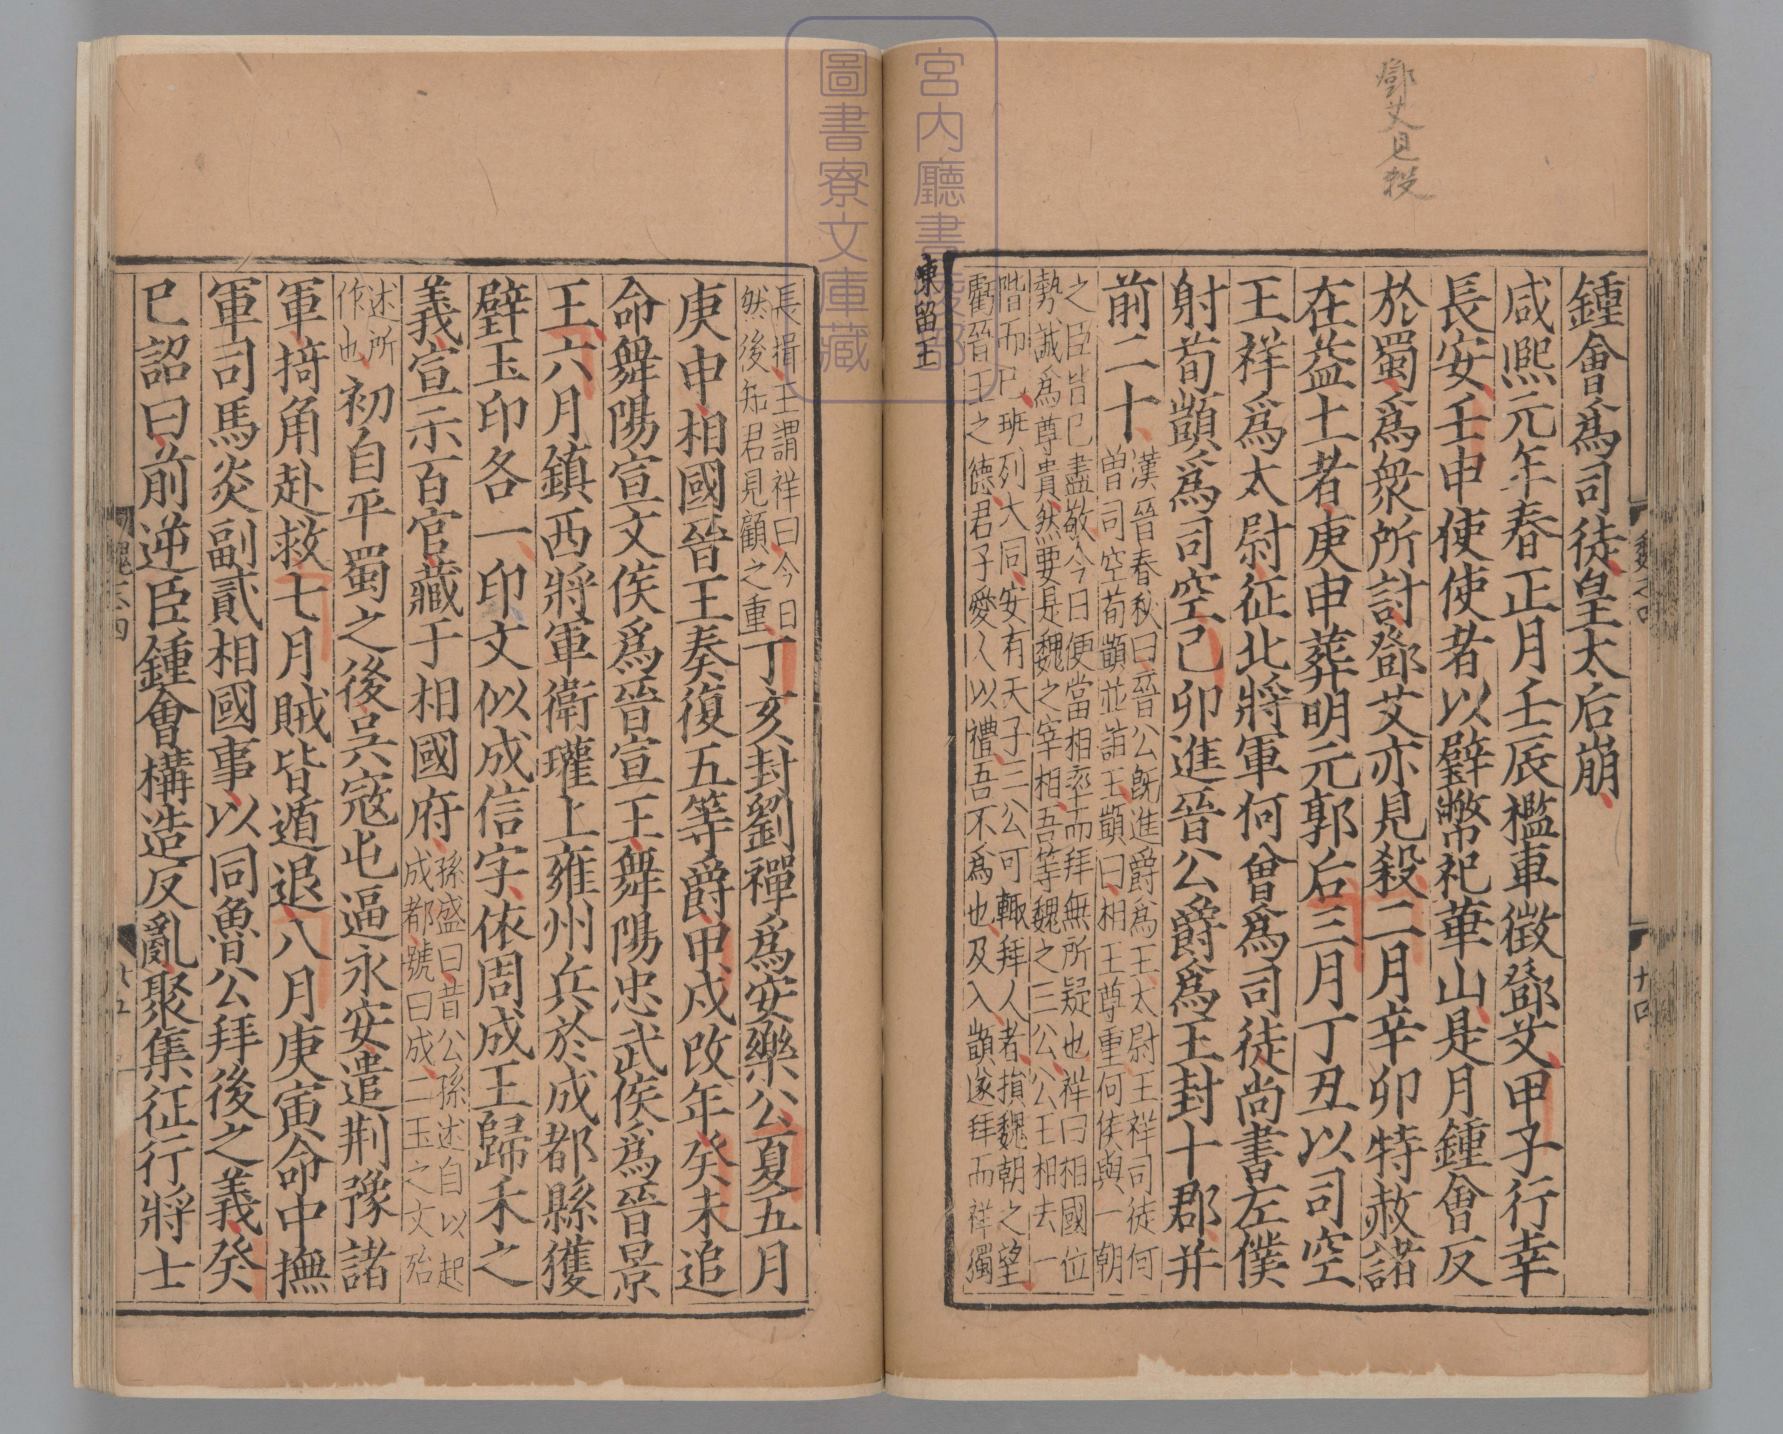 鄧艾見殺
魏志四
十四
鍾會爲司徒皇太后崩
咸熙元年春正月壬辰檻車徵鄧艾甲子行幸
長安壬申使使者以璧幣祀華山是月鍾會反
於蜀爲衆所討鄧艾亦見殺二月辛卯特赦諸
在益土者庚申葬明元郭后三月丁丑以司空
王祥爲太尉征北將軍何曾爲司徒尚書左僕
射荀顗爲司空己卯進晉公爵爲王封十郡并
前二十
漢晉春秋曰晉公旣進爵爲王太尉王祥司徒何
曾司空荀顗並詣王顗曰相王尊重何侯與一朝
之臣皆已盡敬今日便當相率而拜無所疑也祥曰相國位
勢誠爲尊貴然要是魏之宰相吾等魏之三公公王相去一
階而已班列大同安有天子三公可輒拜人者損魏朝之望
虧晉王之德君子愛人以禮吾不爲也及入顗遂拜而祥獨
陳留王
宮內廳書陵部
圖書寮文庫藏
長揖王謂祥曰今日
然後知君見顧之重
丁亥封劉禪爲安樂公夏五月
庚申相國晉王奏復五等爵甲戌改年癸未追
命舞陽宣文侯爲晉宣王舞陽忠武侯爲晉景
王六月鎮西將軍衛瓘上雍州兵於成都縣獲
璧玉印各一印文似成信字依周成王歸禾之
義宣示百官藏于相國府
孫盛曰昔公孫述自以起
成都號曰成二玉之文殆
述所
作也
初自平蜀之後吳寇屯逼永安遣荆豫諸
軍掎角赴救七月賊皆遁退八月庚寅命中撫
軍司馬炎副貳相國事以同魯公拜後之義癸
巳詔曰前逆臣鍾會構造反亂聚集征行將士
魏志四
十五